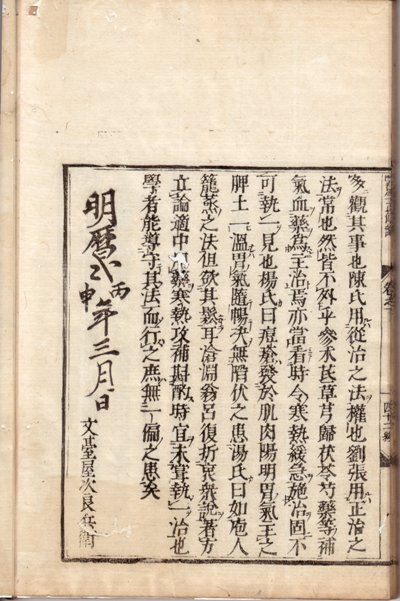 多觀其事也陳氏用從治之法權也劉張用正治之
法常也然皆不外乎參朮芪草芎歸茯苓芍藥等補
氣血藥為主治焉亦當看時令寒熱緩急施治固不
可執一見也楊氏曰痘瘡發於肌肉陽明胃氣主之
脾土一溫胃氣隨暢決無陷伏之患湯氏曰如庖人
籠蒸之法但欲其鬆耳滄淵翁呂復折衷衆說著方
立論適中藥寒熱攻補斟酌時宜未嘗執一治也
學者能遵守其法而行之庶無一偏之患矣
明曆二丙申年三月日
文臺屋次良兵衞
四十二終